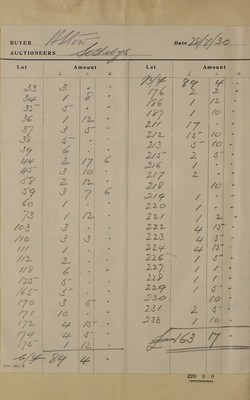 BUYER Date 28/7/30
AUCTIONEERS Sothebys
Lot Amount Lot Amount
33 3 - -
34 1 8 -
35 5 - -
36 1 12 -
37 3 5 -
38 5 - -
39 6 - -
44 2 17 6
45 3 10 -
58 2 12 -
59 3 7 6
60 1 - -
73 1 12 -
103 3 - -
110 3 3 -
111 1 - -
112 2 - -
118 6 - -
125 5 - -
165 5 - -
170 3 5 -
171 10 - -
172 4 15 -
174 4 5 -
175 1 12 -
C/f 89 4 -
B/f 89 4 -
176 2 2 -
186 1 12 -
187 1 10 -
211 17 - -
212 15 10 -
213 5 10 -
215 2 5 -
216 1 - -
217 2 - -
218 10 -
219 1 - -
220 1 - -
221 1 2 -
222 4 15 -
223 4 5 -
224 4 15 -
226 1 5 -
227 1 1 -
228 1 1 -
229 1 5 -
230 10 -
231 2 5 -
233 1 10 -
£163 17 -
220 0 0